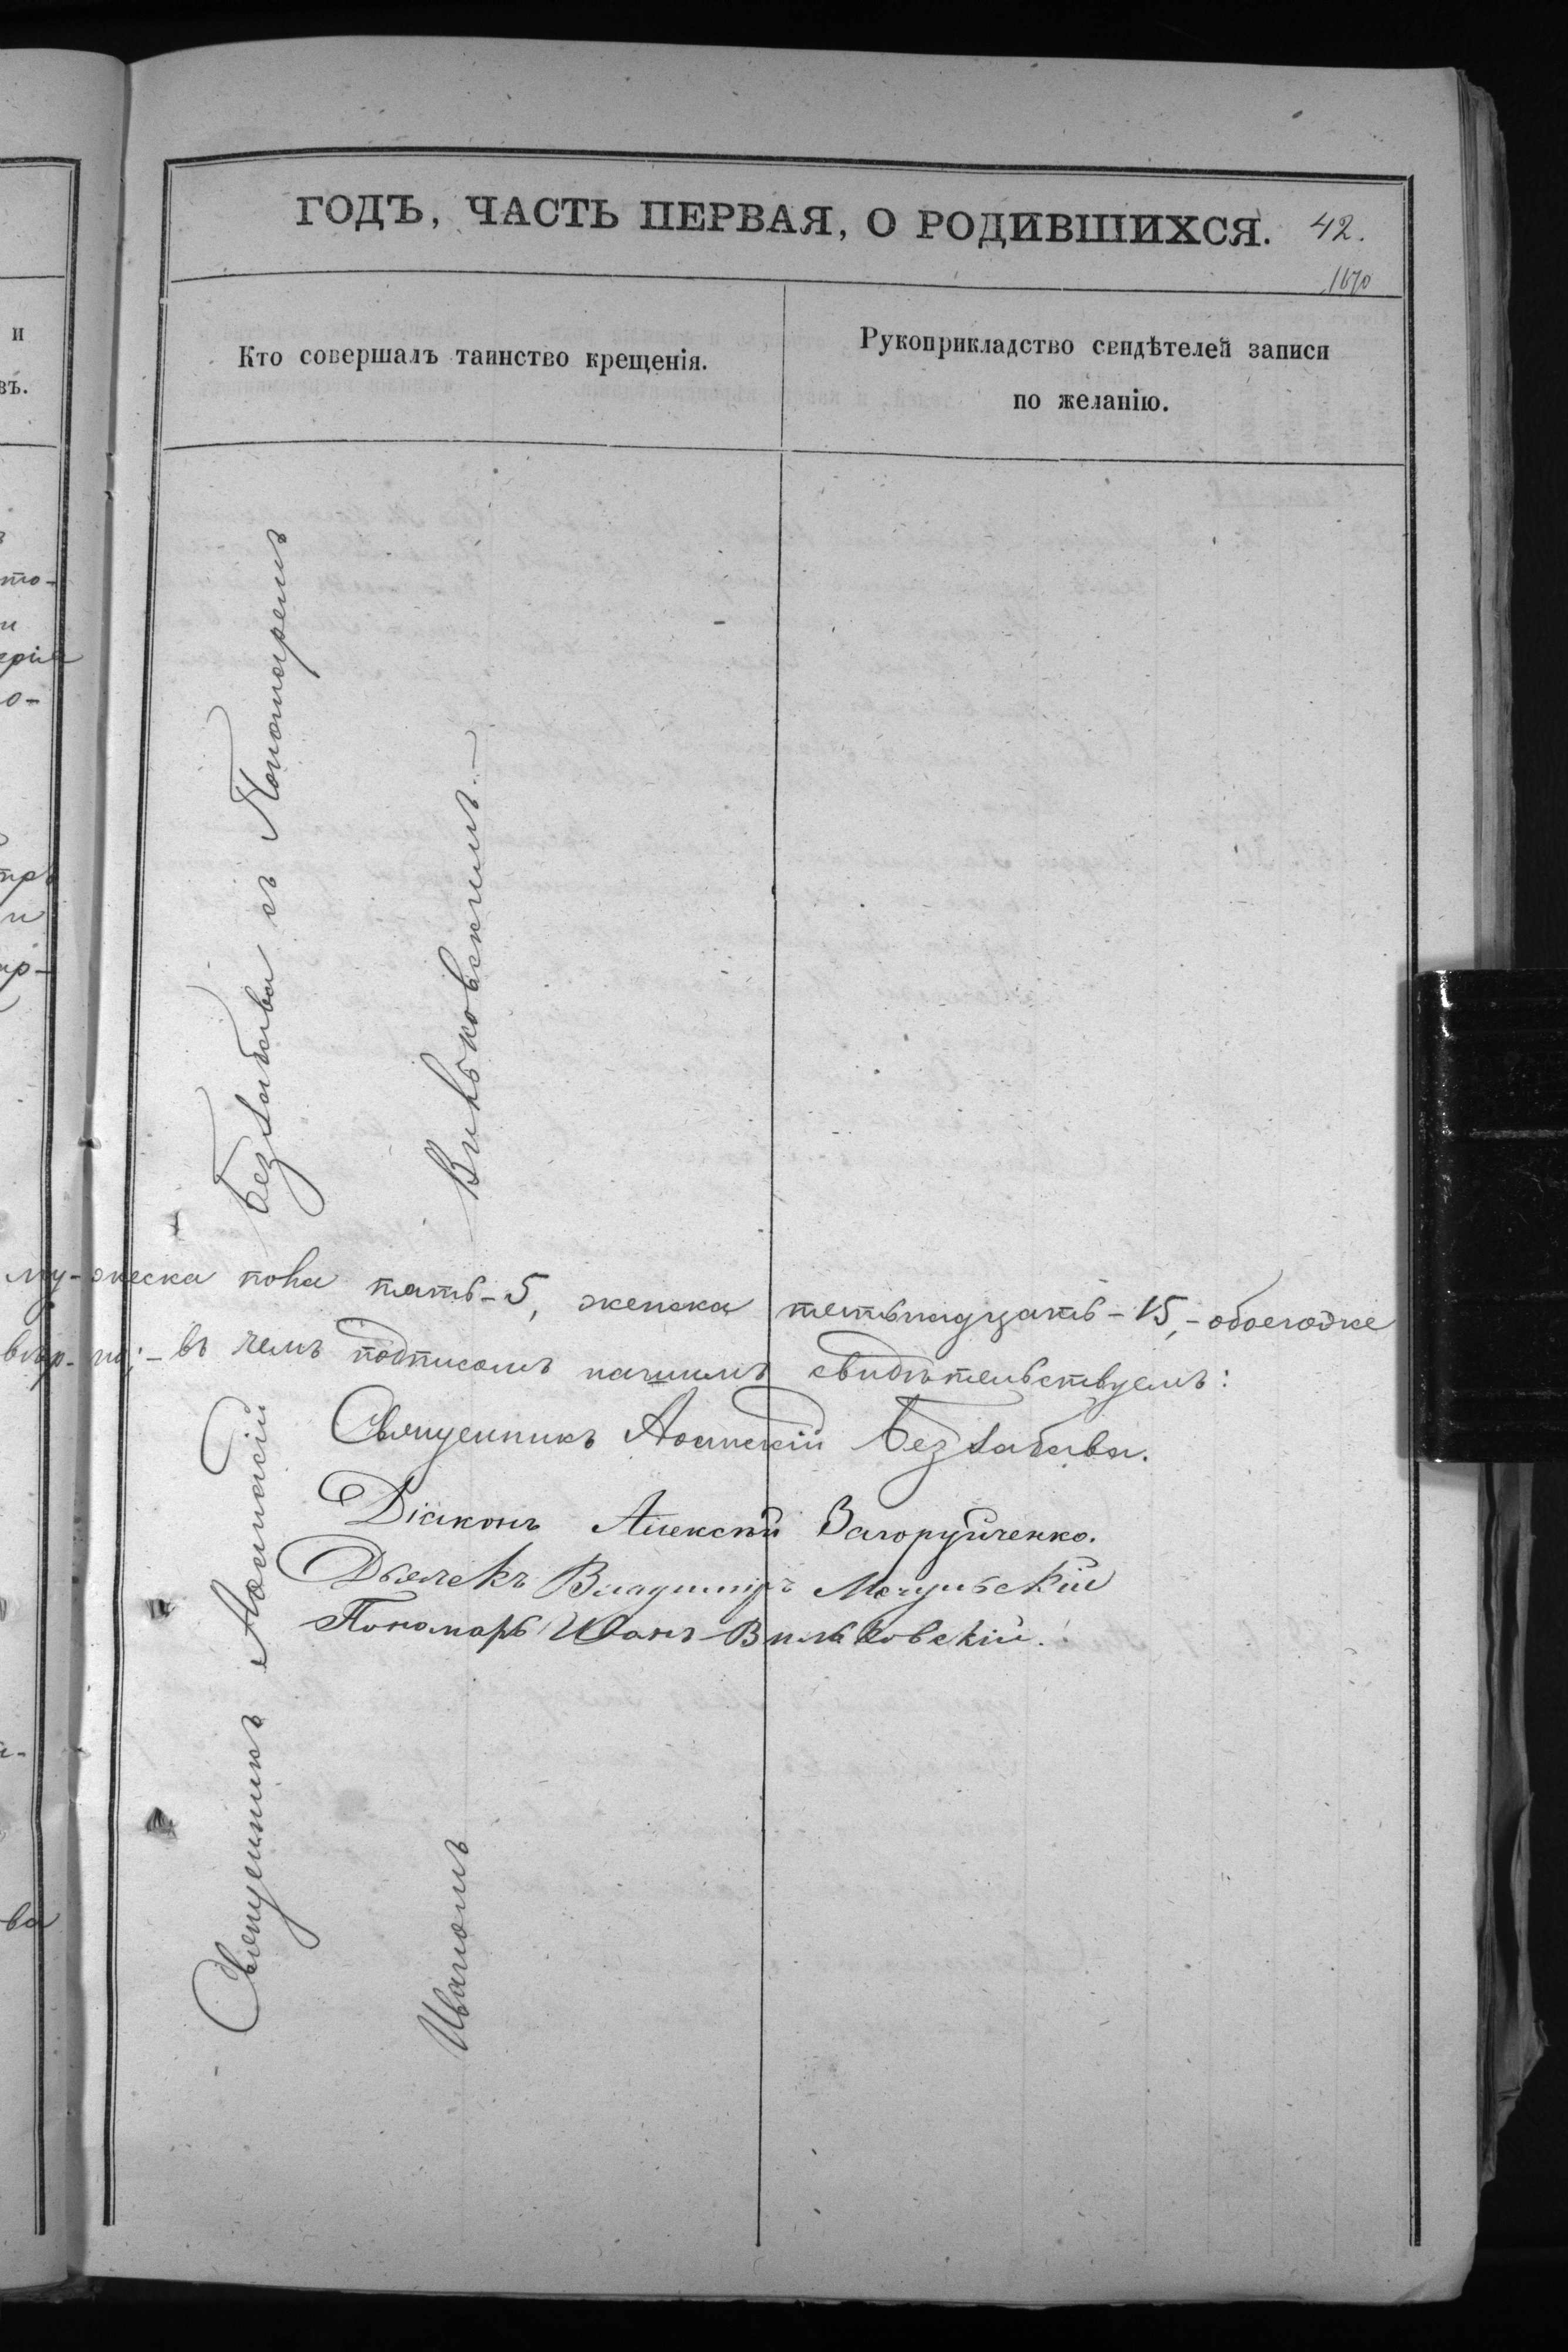 ГОДЪ, ЧАСТЬ ПЕРВАЯ, О РОДИВШИХСЯ. 42.
1670
Кто совершалъ таинство крещенія.
Рукоприкладство свидѣтелей записи
по желанію.
и
въ.
Священникъ Аѳанасій Беззабава съ Пономаремъ
Иваномъ Вильковскимъ.—
му-жеска пола пять-5, женска пятьнадцать-15,-обоегоже
въ чемъ подписомъ нашимъ свидѣтельствуемъ:
Священникъ Аѳанасій Беззабава.
Діаконъ Алексѣй Загоруйченко.
Дьячекъ Владиміръ Мочульскій
Пономарь Іоанъ Вильковскій.